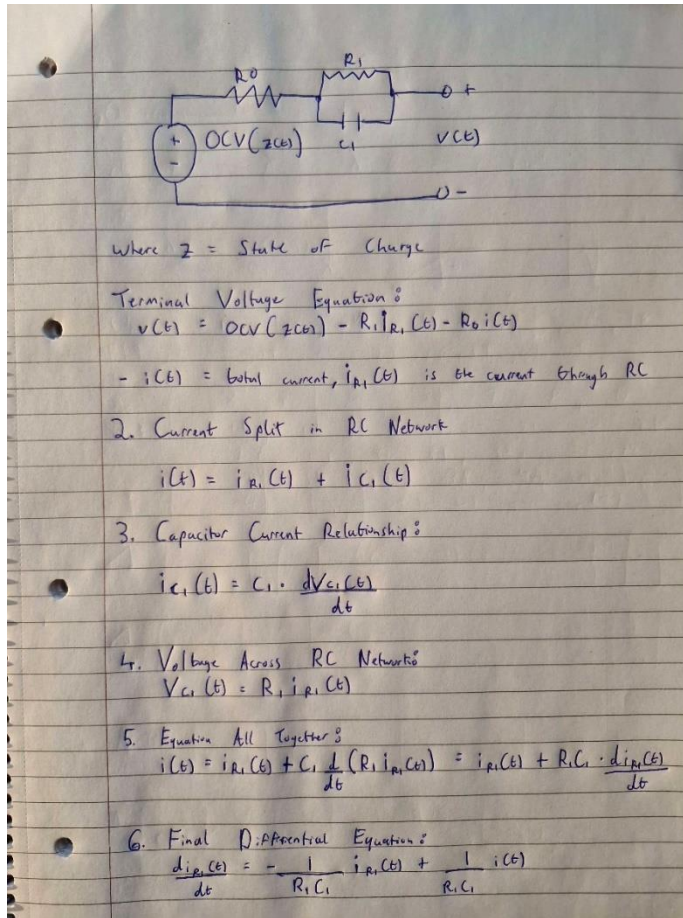 R0
R₁
+
OCV(z(t))
C₁
V(t)
+
-
-
where z = State of Charge
Terminal Voltage Equation:
v(t) = OCV(z(t)) - R₁i_R₁(t) - R₀i(t)
- i(t) = total current, i_R₁(t) is the current through RC
2. Current Split in RC Network
i(t) = i_R₁(t) + i_C₁(t)
3. Capacitor Current Relationship:
i_C₁(t) = C₁ · dV_C₁(t)/dt
4. Voltage Across RC Network:
V_C₁(t) = R₁i_R₁(t)
5. Equation All Together:
i(t) = i_R₁(t) + C₁ d/dt (R₁i_R₁(t)) = i_R₁(t) + R₁C₁ · di_R₁(t)/dt
6. Final Differential Equation:
di_R₁(t)/dt = - 1/R₁C₁ i_R₁(t) + 1/R₁C₁ i(t)